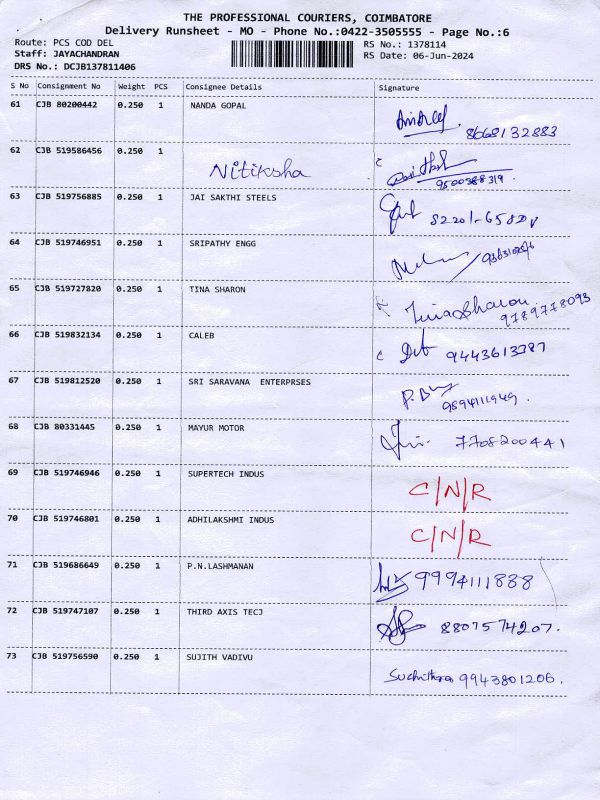 THE PROFESSIONAL COURIERS, COIMBATORE
Delivery Runsheet - MO - Phone No.:0422-3505555 - Page No.:6
Route: PCS COD DEL
RS No.: 1378114
Staff: JAYACHANDRAN
RS Date: 06-Jun-2024
DRS No.: DCJB137811406
S No Consignment No Weight PCS Consignee Details Signature
61 CJB 80200442 0.250 1 NANDA GOPAL
8668132883
62 CJB 519586456 0.250 1
Nitiksha
9500388319.
63 CJB 519756885 0.250 1 JAI SAKTHI STEELS
64 CJB 519746951 0.250 1 SRIPATHY ENGG
65 CJB 519727820 0.250 1 TINA SHARON
Tina Sharon
9789778093
66 CJB 519832134 0.250 1 CALEB
9443613387
67 CJB 519812520 0.250 1 SRI SARAVANA ENTERPRSES
9894111949.
68 CJB 80331445 0.250 1 MAYUR MOTOR
7708200441
69 CJB 519746946 0.250 1 SUPERTECH INDUS
C/N/R
70 CJB 519746801 0.250 1 ADHILAKSHMI INDUS
C/N/R
71 CJB 519686649 0.250 1 P.N.LASHMANAN
9994111838
72 CJB 519747107 0.250 1 THIRD AXIS TECJ
8807574207.
73 CJB 519756590 0.250 1 SUJITH VADIVU
Suchithra 9943801206.